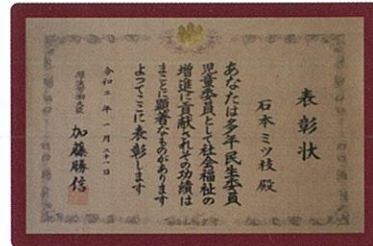 表彰状
石本ミツ枝 殿
あなたは多年民生委員
児童委員として社会福祉の
増進に貢献されその功績は
まことに顕著なものがあります
よってここに表彰します
令和二年一月三十一日
厚生労働大臣 加藤勝信